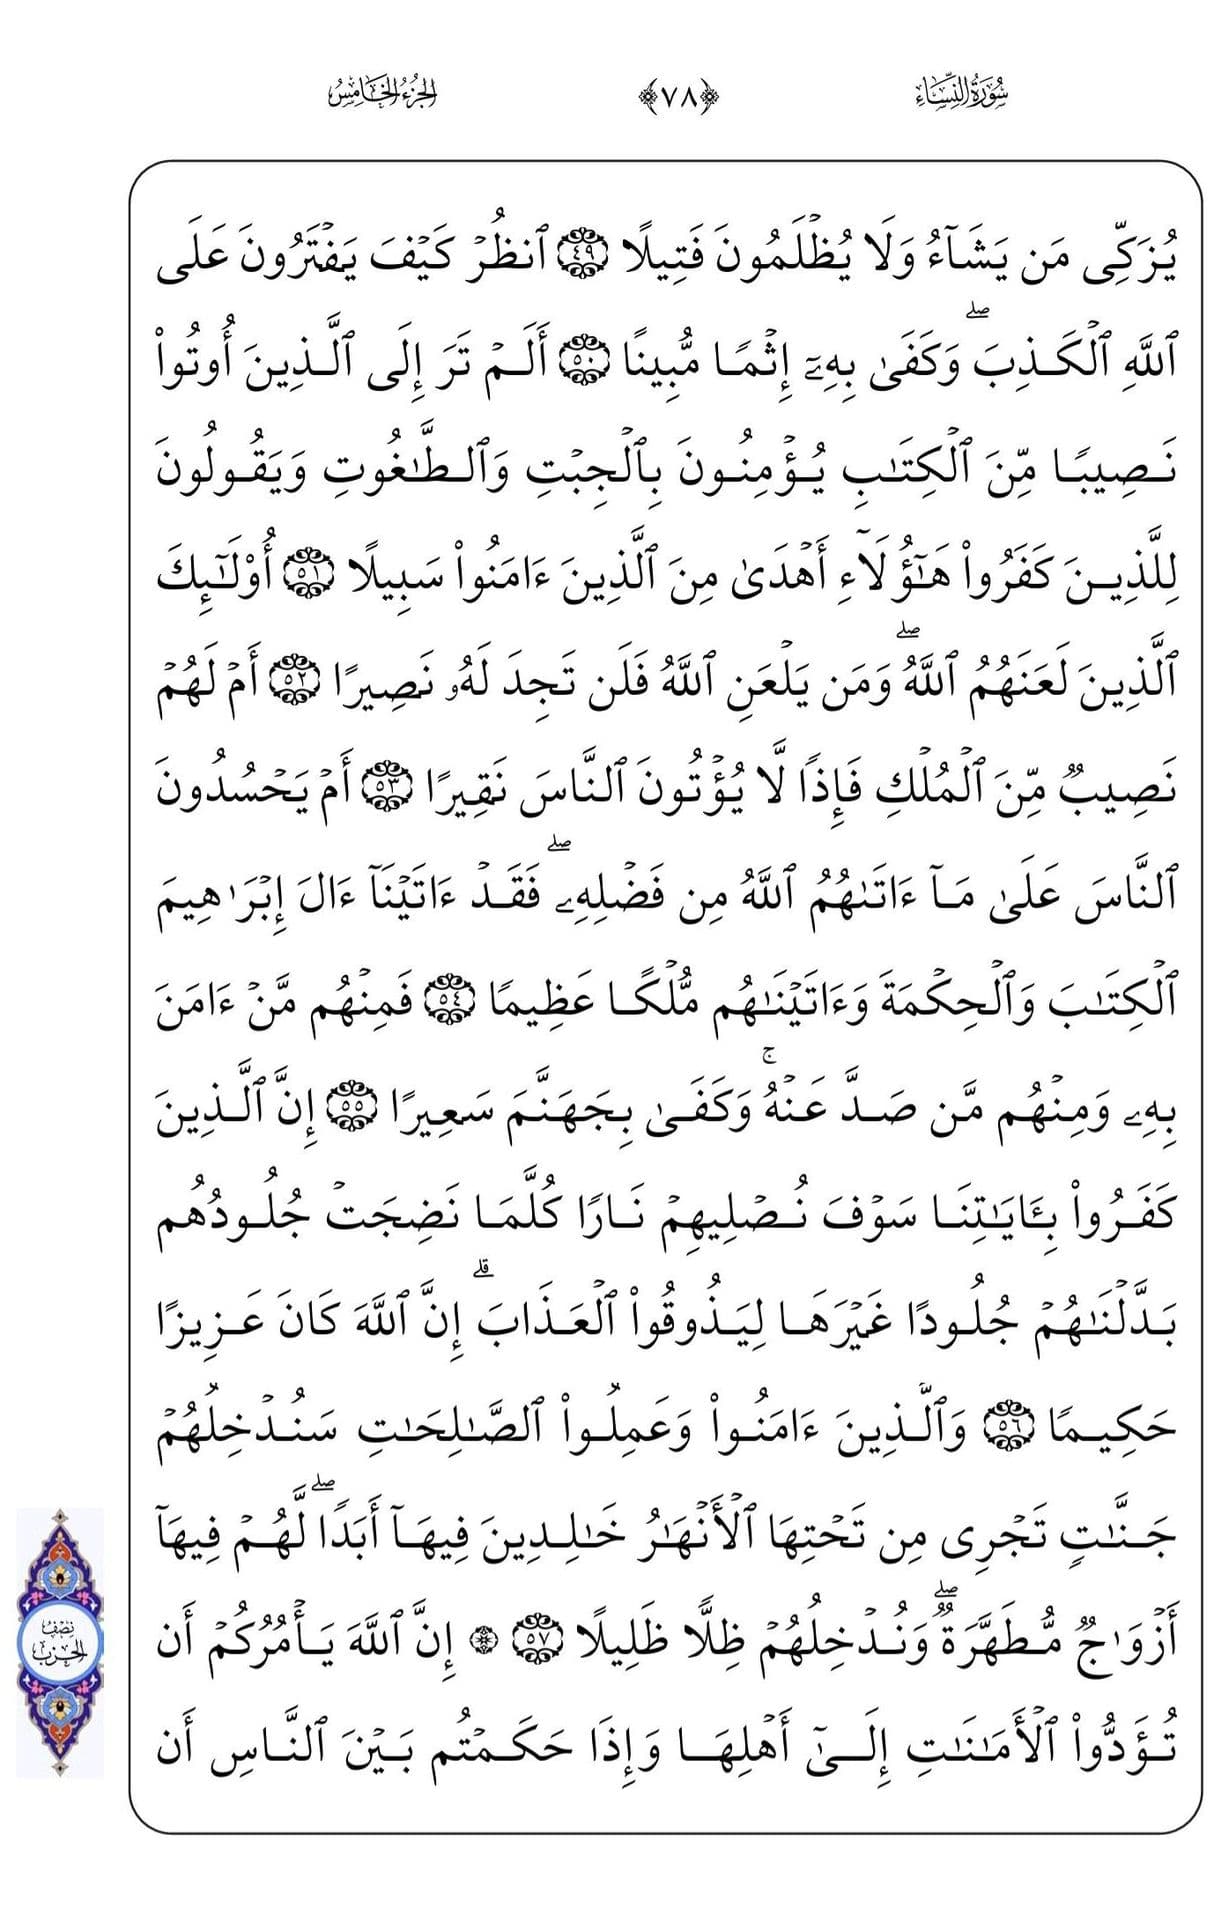 سُورَةُ النِّسَاءِ ﴿٧٨﴾ الجُزْءُ الخَامِسُ
يُزَكِّى مَن يَشَآءُ وَلَا يُظْلَمُونَ فَتِيلًا ٤٩ ٱنظُرْ كَيْفَ يَفْتَرُونَ عَلَى
ٱللَّهِ ٱلْكَذِبَ ۖ وَكَفَىٰ بِهِۦٓ إِثْمًا مُّبِينًا ٥٠ أَلَمْ تَرَ إِلَى ٱلَّذِينَ أُوتُوا۟
نَصِيبًا مِّنَ ٱلْكِتَـٰبِ يُؤْمِنُونَ بِٱلْجِبْتِ وَٱلطَّـٰغُوتِ وَيَقُولُونَ
لِلَّذِينَ كَفَرُوا۟ هَـٰٓؤُلَآءِ أَهْدَىٰ مِنَ ٱلَّذِينَ ءَامَنُوا۟ سَبِيلًا ٥١ أُو۟لَـٰٓئِكَ
ٱلَّذِينَ لَعَنَهُمُ ٱللَّهُ ۖ وَمَن يَلْعَنِ ٱللَّهُ فَلَن تَجِدَ لَهُۥ نَصِيرًا ٥٢ أَمْ لَهُمْ
نَصِيبٌ مِّنَ ٱلْمُلْكِ فَإِذًا لَّا يُؤْتُونَ ٱلنَّاسَ نَقِيرًا ٥٣ أَمْ يَحْسُدُونَ
ٱلنَّاسَ عَلَىٰ مَآ ءَاتَىٰهُمُ ٱللَّهُ مِن فَضْلِهِۦ ۖ فَقَدْ ءَاتَيْنَآ ءَالَ إِبْرَٰهِيمَ
ٱلْكِتَـٰبَ وَٱلْحِكْمَةَ وَءَاتَيْنَـٰهُم مُّلْكًا عَظِيمًا ٥٤ فَمِنْهُم مَّنْ ءَامَنَ
بِهِۦ وَمِنْهُم مَّن صَدَّ عَنْهُ ۚ وَكَفَىٰ بِجَهَنَّمَ سَعِيرًا ٥٥ إِنَّ ٱلَّذِينَ
كَفَرُوا۟ بِـَٔايَـٰتِنَا سَوْفَ نُصْلِيهِمْ نَارًا كُلَّمَا نَضِجَتْ جُلُودُهُم
بَدَّلْنَـٰهُمْ جُلُودًا غَيْرَهَا لِيَذُوقُوا۟ ٱلْعَذَابَ ۗ إِنَّ ٱللَّهَ كَانَ عَزِيزًا
حَكِيمًا ٥٦ وَٱلَّذِينَ ءَامَنُوا۟ وَعَمِلُوا۟ ٱلصَّـٰلِحَـٰتِ سَنُدْخِلُهُمْ
جَنَّـٰتٍ تَجْرِى مِن تَحْتِهَا ٱلْأَنْهَـٰرُ خَـٰلِدِينَ فِيهَآ أَبَدًا ۖ لَّهُمْ فِيهَآ
أَزْوَٰجٌ مُّطَهَّرَةٌ ۖ وَنُدْخِلُهُمْ ظِلًّا ظَلِيلًا ٥٧ ۞ إِنَّ ٱللَّهَ يَأْمُرُكُمْ أَن
تُؤَدُّوا۟ ٱلْأَمَـٰنَـٰتِ إِلَىٰٓ أَهْلِهَا وَإِذَا حَكَمْتُم بَيْنَ ٱلنَّاسِ أَن
نِصْفُ
الحِزْبِ